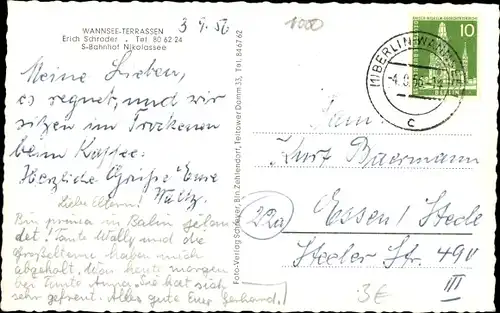 WANNSEE-TERRASSEN
Erich Schröder . Tel 80 62 24
S-Bahnhof Nikolassee
3 9. 56
1000
Meine Lieben,
es regnet, und wir
sitzen im Trockenen
beim Kaffee.
Herzliche Grüße Eure
Liebe Eltern!
Bin prima in Berlin gelan
det! Tante Wally und die
Großeltern haben mich
abgeholt. War heute morgen
bei Tante Anna. Sie hat sich
sehr gefreut. Alles gute Euer Gerhard.
Foto-Verlag Schröder, Bln. Zehlendorf, Teltower Damm 33, Tel. 84 67 62
10
BERLIN
(1) BERLIN-WANNSEE
-4.9.56
c
Kurt Baermann
22a
Essen / Steele
Steeler Str. 490
III
3€